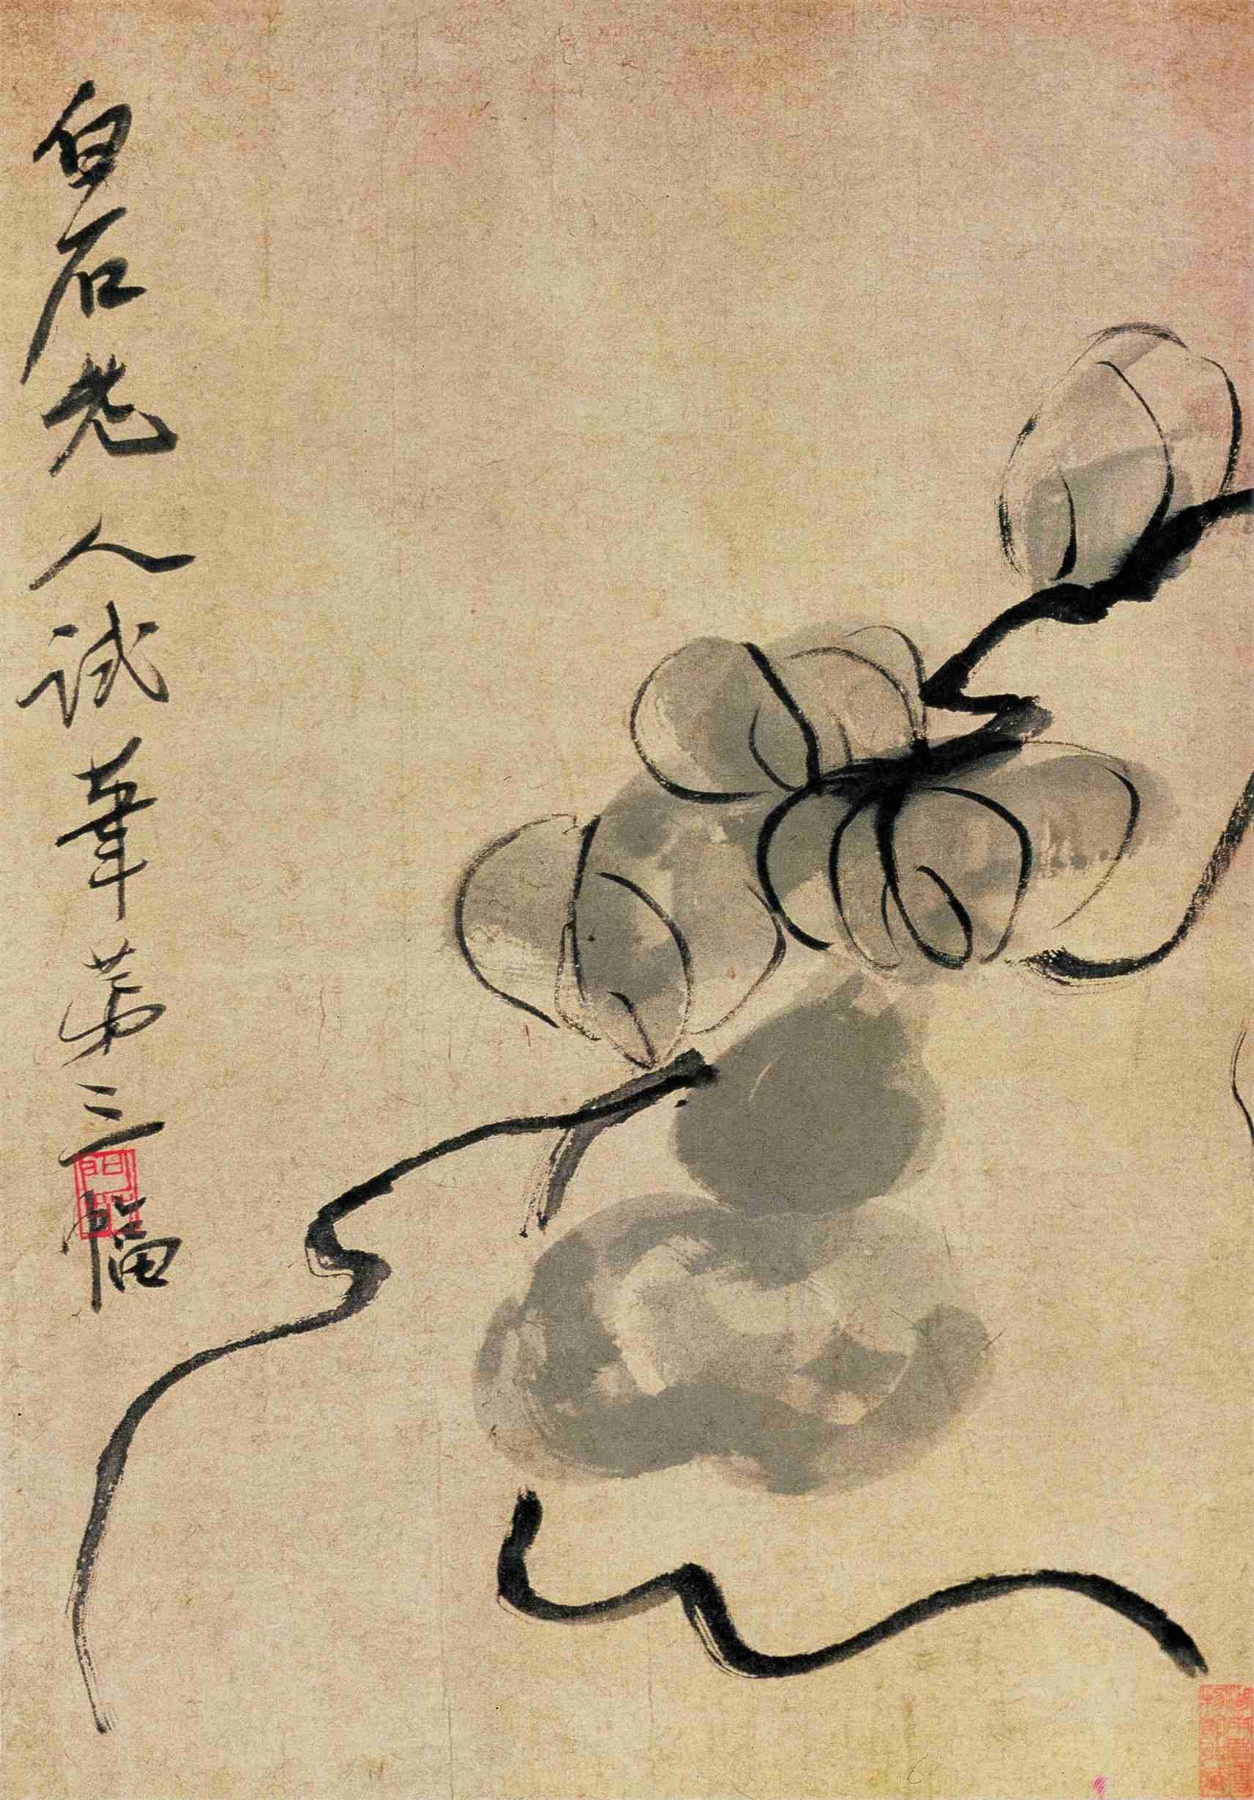 白石老人试笔第三幅